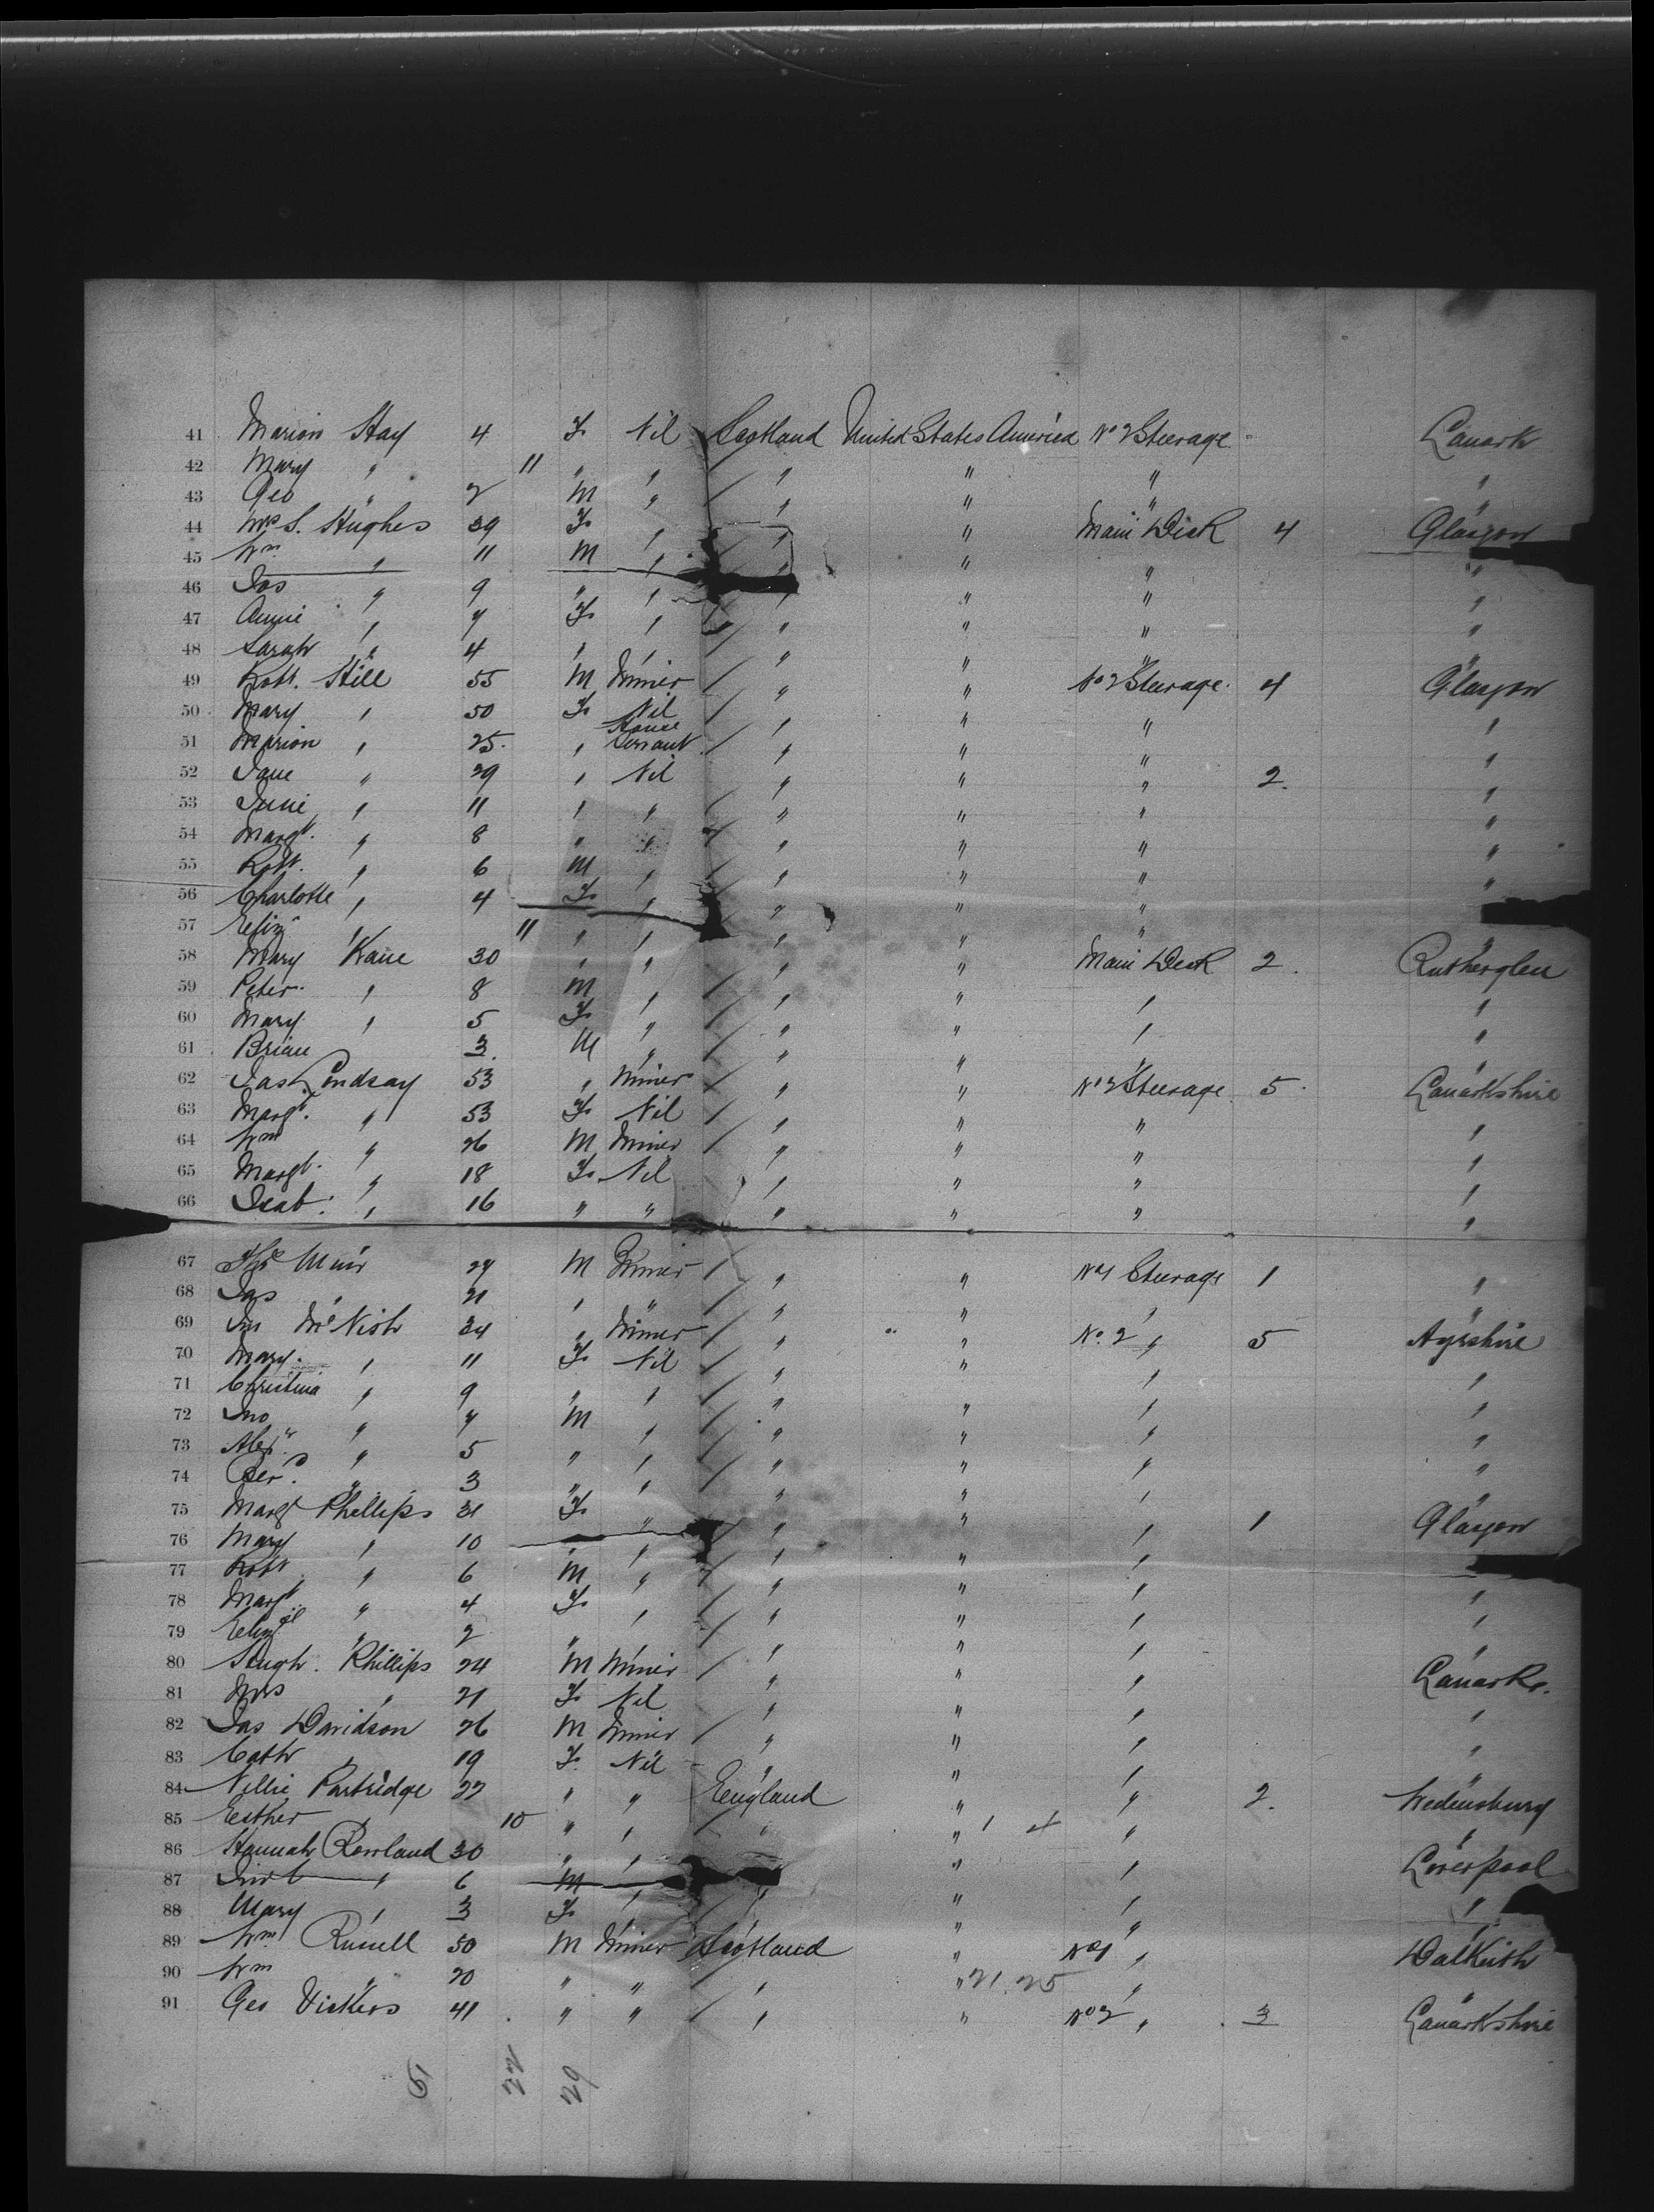 41 Marion Hay 4 F. Nil Scotland United States America No 2 Steerage Lanark
42 Mary " 11 " " / " " " "
43 Geo " 2 M " / " " " "
44 Mrs S. Hughes 39 F. " / " " Main Deck 4 Glasgow
45 Wm " 11 M " / " " " "
46 Jas " 9 " " / " " " "
47 Annie " 7 F. " / " " " "
48 Sarah " 4 " " / " " " "
49 Robt. Hill 55 M Miner / " " No 2 Steerage. 4 Glasgow
50 Mary " 50 F. Nil / " " " "
51 Marion " 25. " House Servant / " " " "
52 Jane " 29 " Nil " " " 2. "
53 Junie " 11 " " / " " " "
54 Margt. " 8 " " / " " " "
55 Robt. " 6 M " / " " " "
56 Charlotte " 4 F. " / " " " "
57 Eliz " 11 " " " " "
58 Mary Kane 30 " " / " " Main Deck 2. Rutherglen
59 Peter. " 8 M " / " " " "
60 Mary " 5 F. " / " " " "
61 Brian 3. M " / " " " "
62 Jas Lindsay 53 " Miner / " " No 2 Steerage 5. Lanarkshire
63 Margt. " 53 F. Nil / " " " "
64 Wm " 26 M Miner / " " " "
65 Margt. " 18 F. Nil " " " "
66 Isab. " 16 " " " " " "
67 Thos Muir 24 M Miner / " " No 1 Steerage 1 "
68 Jas " 21 " " / " " " "
69 Jno McNish 34 " Miner / " " No. 2 " 5 Ayrshire
70 Mary. " 11 F. Nil / " " " "
71 Christina " 9 " " / " " " "
72 Jno " 7 M " / " " " "
73 Alexr. " 5 " " / " " " "
74 " 3 " " / " " " "
75 Margt Phillips 31 F. " / " " " 1 Glasgow
76 Mary " 10 " " / " " "
77 Robt " 6 M " / " " " "
78 Margt " 4 F. " / " " " "
79 Eliz " 2 " " / " " " "
80 Hugh. Phillips 24 M Miner / " " " Lanark.
81 Mrs " 21 F. Nil " " " "
82 Jas Davidson 26 M Miner / " " " "
83 Cath " 19 F. Nil " " " "
84 Nellie Partridge 22 " " England " " 2. Wedensburg
85 Esther " 10 " " / " " 1 4 " "
86 Hannah Rowland 30 " " " " Liverpool
87 " 6 M " " " "
88 Mary " 3 F. " / " " " "
89 Wm Russell 50 M Miner Scotland " No 1 " Dalkeith
90 Wm " 20 " " / " " 21.25 " "
91 Geo Vickers 41 " " / " " No 2 " 3 Lanarkshire
22 29